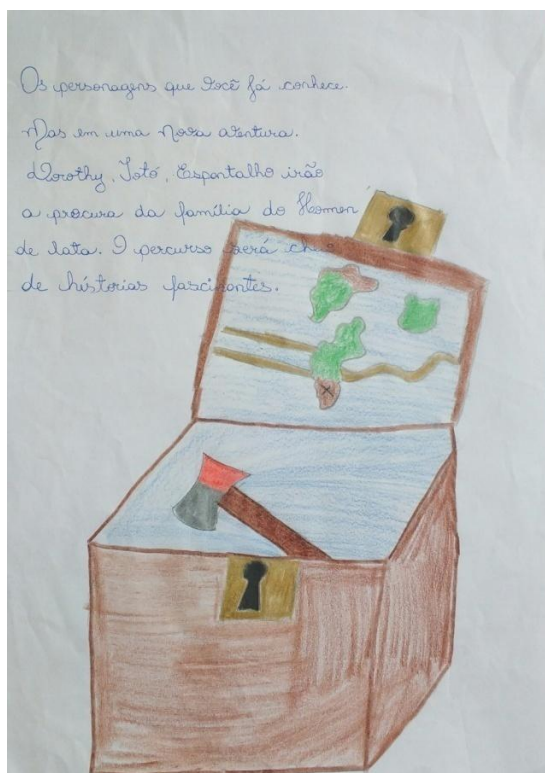 Os personagens que você já conhece.
Mas em uma nova aventura.
Dorothy, Totó, Espantalho irão
a procura da família do Homem
de lata. O percurso será cheio
de histórias fascinantes.